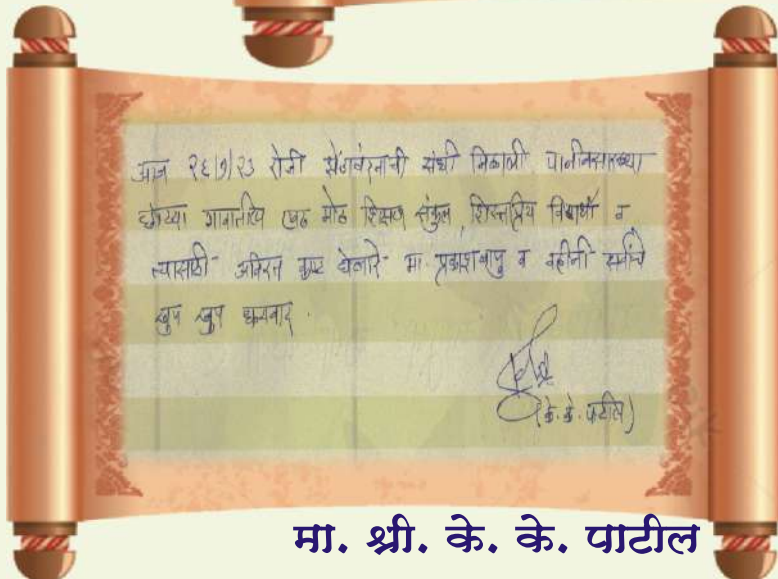 आज २६/१/२३ रोजी झेंडावंदनाची संधी मिळाली. पानीवसारख्या
छोट्या गावातील एवढं मोठ शिक्षण संकुल, शिस्तप्रिय विद्यार्थी व
त्यासाठी अविरत कष्ट घेणारे मा. प्रकाशबापु व वहीनी सर्वांचे
खुप खुप धन्यवाद.
(के. के. पाटील)
मा. श्री. के. के. पाटील